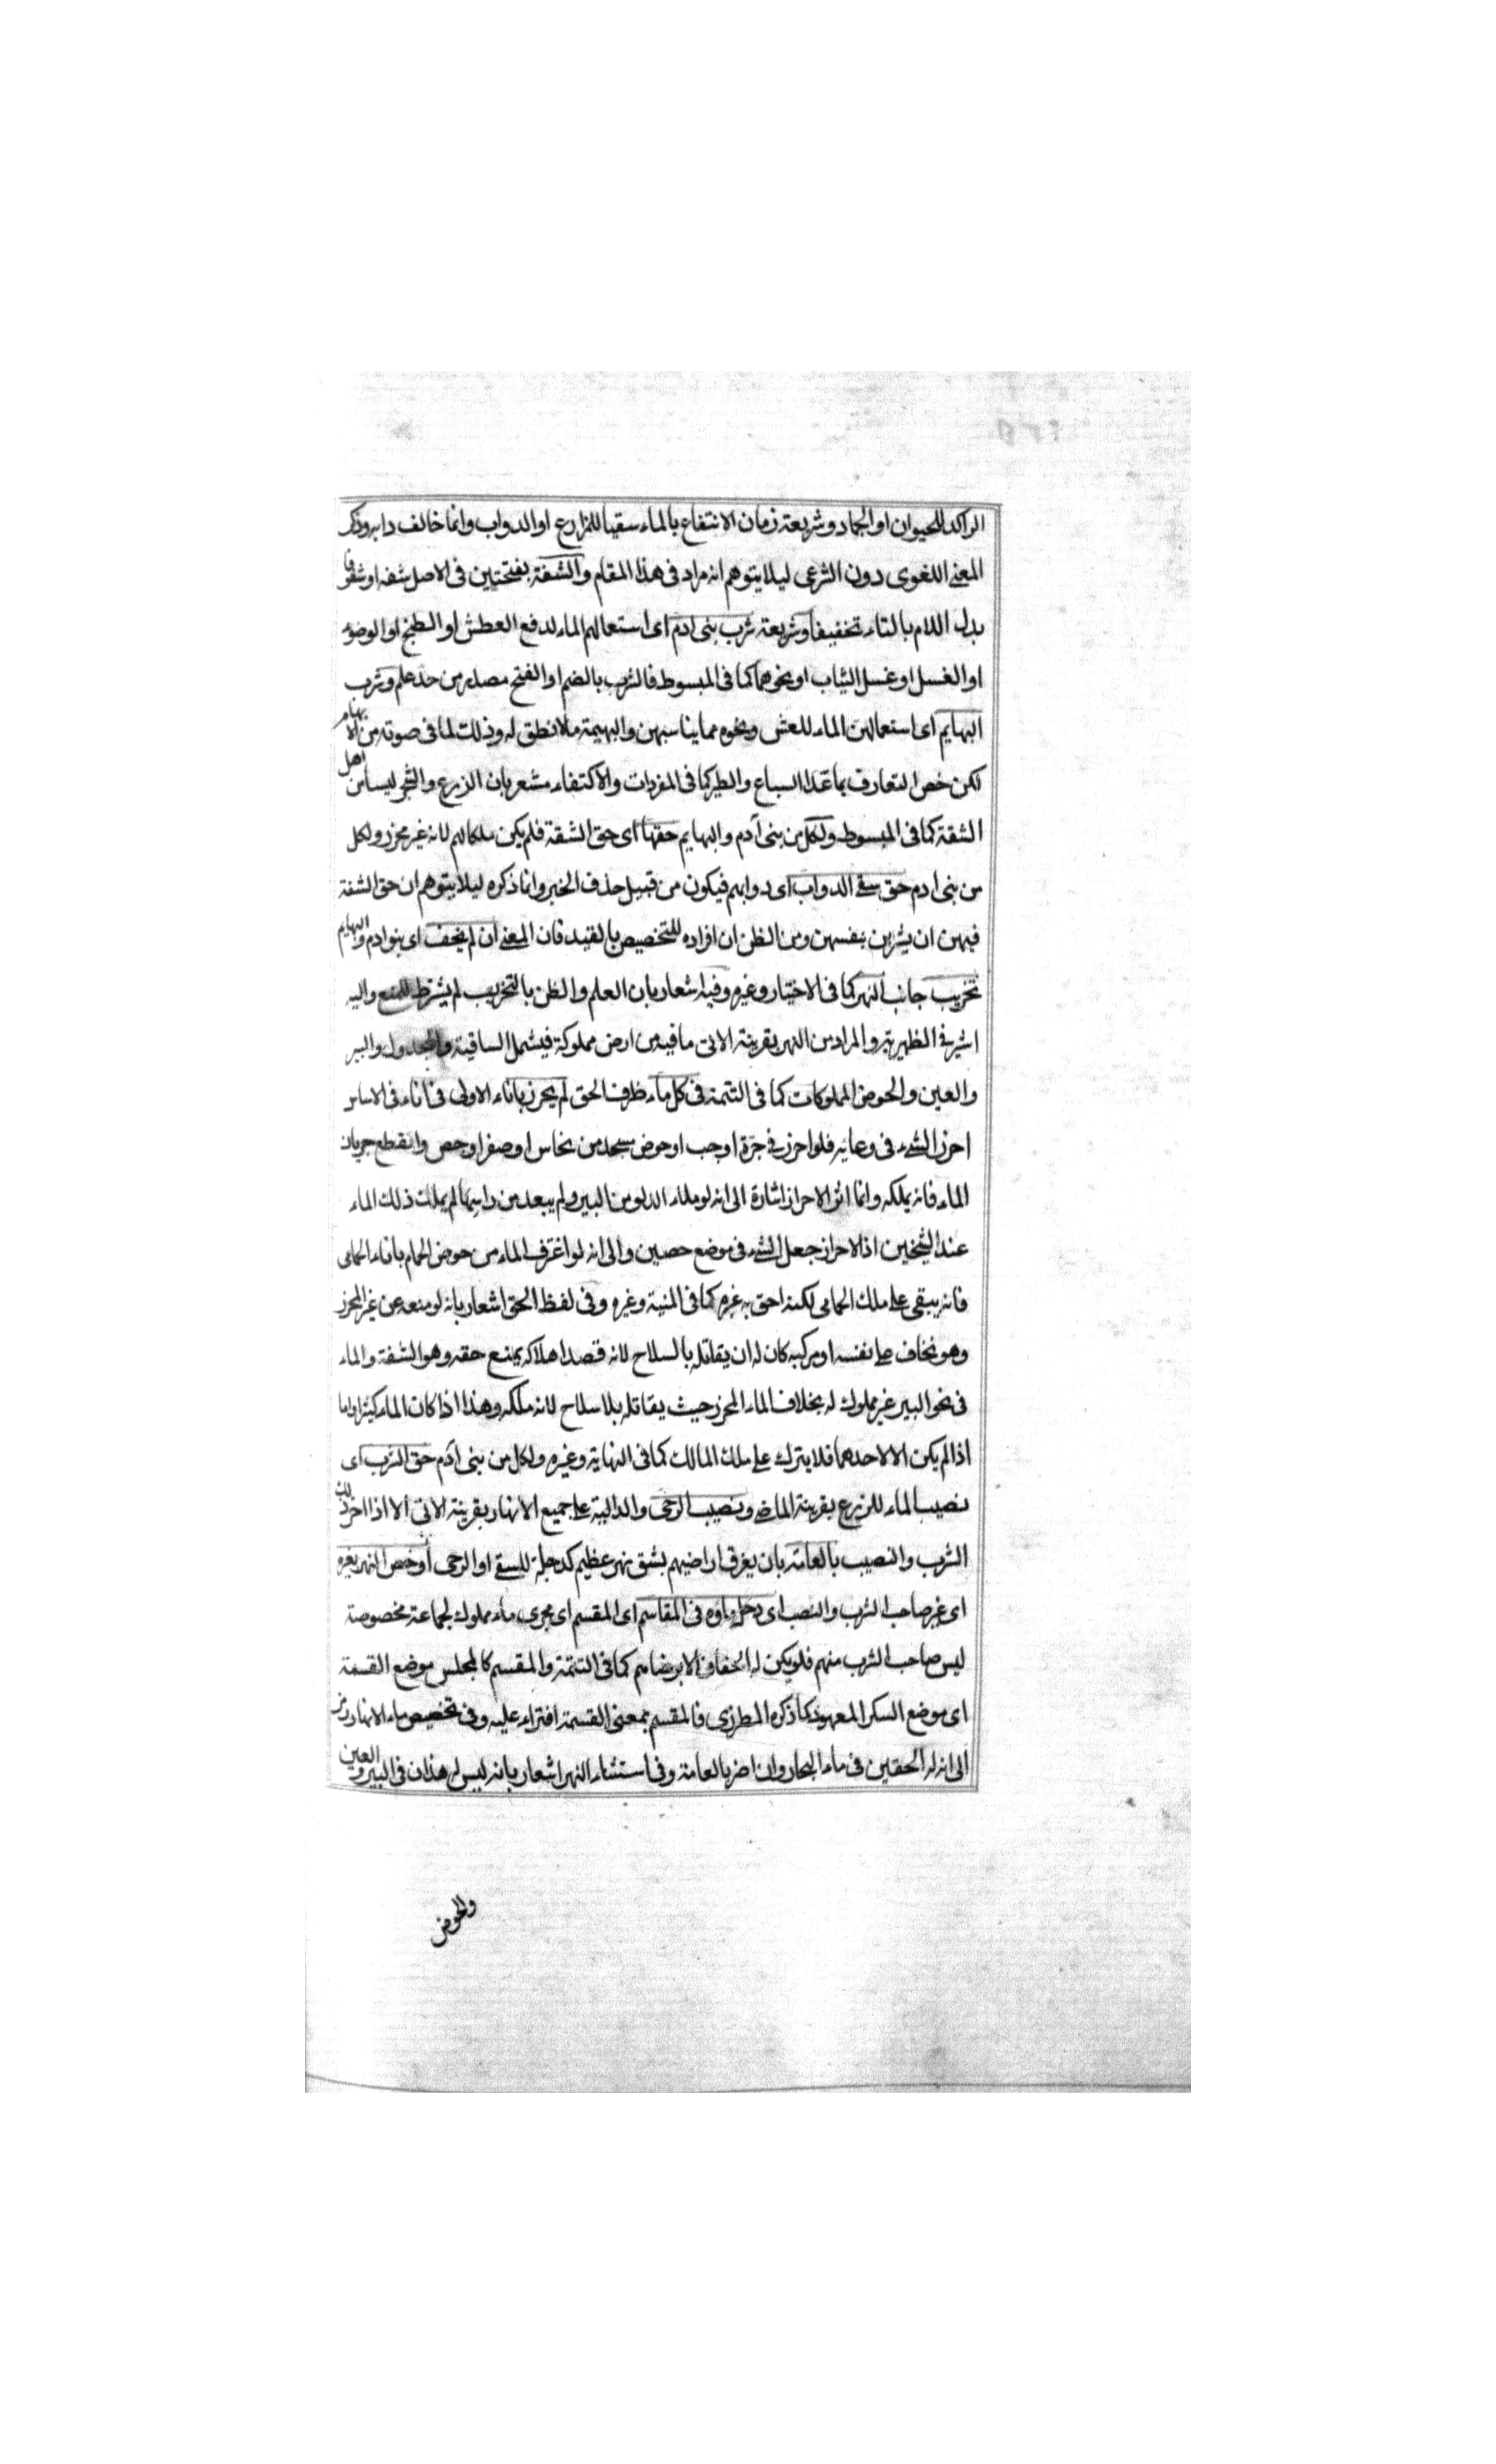 الراكد للحيوان او الجماد وشريعة زمان الانتفاع بالماء سقيا للمزارع او الدواب وانما خالف دابه وذكر
المعنى اللغوى دون الشرعى ليلا يتوهم انه مراد فى هذا المقام والشفة بفتحتين فى الاصل شفه او شفو فا
بدل اللام بالتاء تخفيفا وشريعة شرب بنى ادم اى استعمالهم الماء لدفع العطش او الطبخ او الوضوء
او الغسل او غسل الثياب او نحوهما كما فى المبسوط فالشرب بالضم او الفتح مصدر من حد علم وشرب
البهايم اى استعمالهن الماء للعش ونحوه مما يناسبهن والبهيمة ملا نطق له وذلك لما فى صوته من الابهام
لكن خص التعارف بما عدا السباع والطير كما فى المفردات والاكتفاء مشعر بان الزرع والشجر ليسا من اهل
الشقة كما فى المبسوط ولكل من بنى آدم والبهايم حقها اى حق الشقة فلم يكن ملكا لهم لانه غير محرز ولكل
من بنى ادم حق سقى الدواب اى دوابهم فيكون من قبيل حذف الخبر وانما ذكره ليلا يتوهم ان حق الشفة
فيهن ان يشربن بنفسهن ومن الظن ان افراده للتخصيص بالقيد فان المعنى ان لم يخف اى بنو ادم والبهايم
تخريب جانب النهر كما فى الاختيار وغيره وفيه اشعار بان العلم والظن بالتخريب لم يشترط للمنع واليه
اشير فى الظهيرية والمراد من النهر بقرينة الاتى ما فيه من ارض مملوكة فيشمل الساقية والجدول والبير
والعين والحوض المملوكات كما فى التتمة فى كل ماء ظرف الحق لم يحرز باناء الاولى فى اناء فى الاساس
احرز الشىء فى وعائه فلو احرز فى جرة او جب او حوض مسجد من نحاس او صفر او جص وانقطع جريان
الماء فانه يملكه وانما اثر الاحراز اشارة الى انه لو ملاء الدلو من البير ولم يبعد من راسها لم يملك ذلك الماء
عند الشيخين اذ الاحراز جعل الشىء فى موضع حصين والى انه لو اغترف الماء من حوض الحمام باناء الحمامى
فانه يبقى على ملك الحمامى لكنه احق به غيره كما فى المنية وغيره وفى لفظ الحق اشعار بانه لو منعه عن غير المحرز
وهو يخاف على نفسه او مركبه كان له ان يقاتله بالسلاح لانه قصد اهلاكه بمنع حقه وهو الشفة والماء
فى نحو البير غير مملوك له بخلاف الماء المحرز حيث يقاتله بلا سلاح لانه ملكه وهذا اذا كان الماء كثيرا واما
اذا لم يكن الا لاحدهما فلا يترك على ملك المالك كما فى النهاية وغيره ولكل من بنى آدم حق الشرب اى
نصيب الماء للزرع بقرينة الماضى ونصيب الرحى والدالية على جميع الانهار بقرينة الاتى الا اذا اضر ذلك
الشرب والنصيب بالعامة بان يغرق اراضيهم بشق نهر عظيم كدجلة للسقى او الرحى او خص النهر بغيره
اى غير صاحب الشرب والنصب اى دخل ماؤه فى المقاسم اى المقسم اى مجرى ماء مملوك لجماعة مخصوصة
ليس صاحب الشرب منهم فلو يكن له الحقان الا برضاهم كما فى التتمة والمقسم كالمجلس موضع القسمة
اى موضع السكر المعهود كما ذكره المطرزى فالمقسم بمعنى القسمة افتراء عليه وفى تخصيص ماء الانهار رمز
الى انه له الحقين فى ماء البحار وان اضر بالعامة وفى استثناء النهر اشعار بانه ليس له هذان فى البير والعين
والحوض